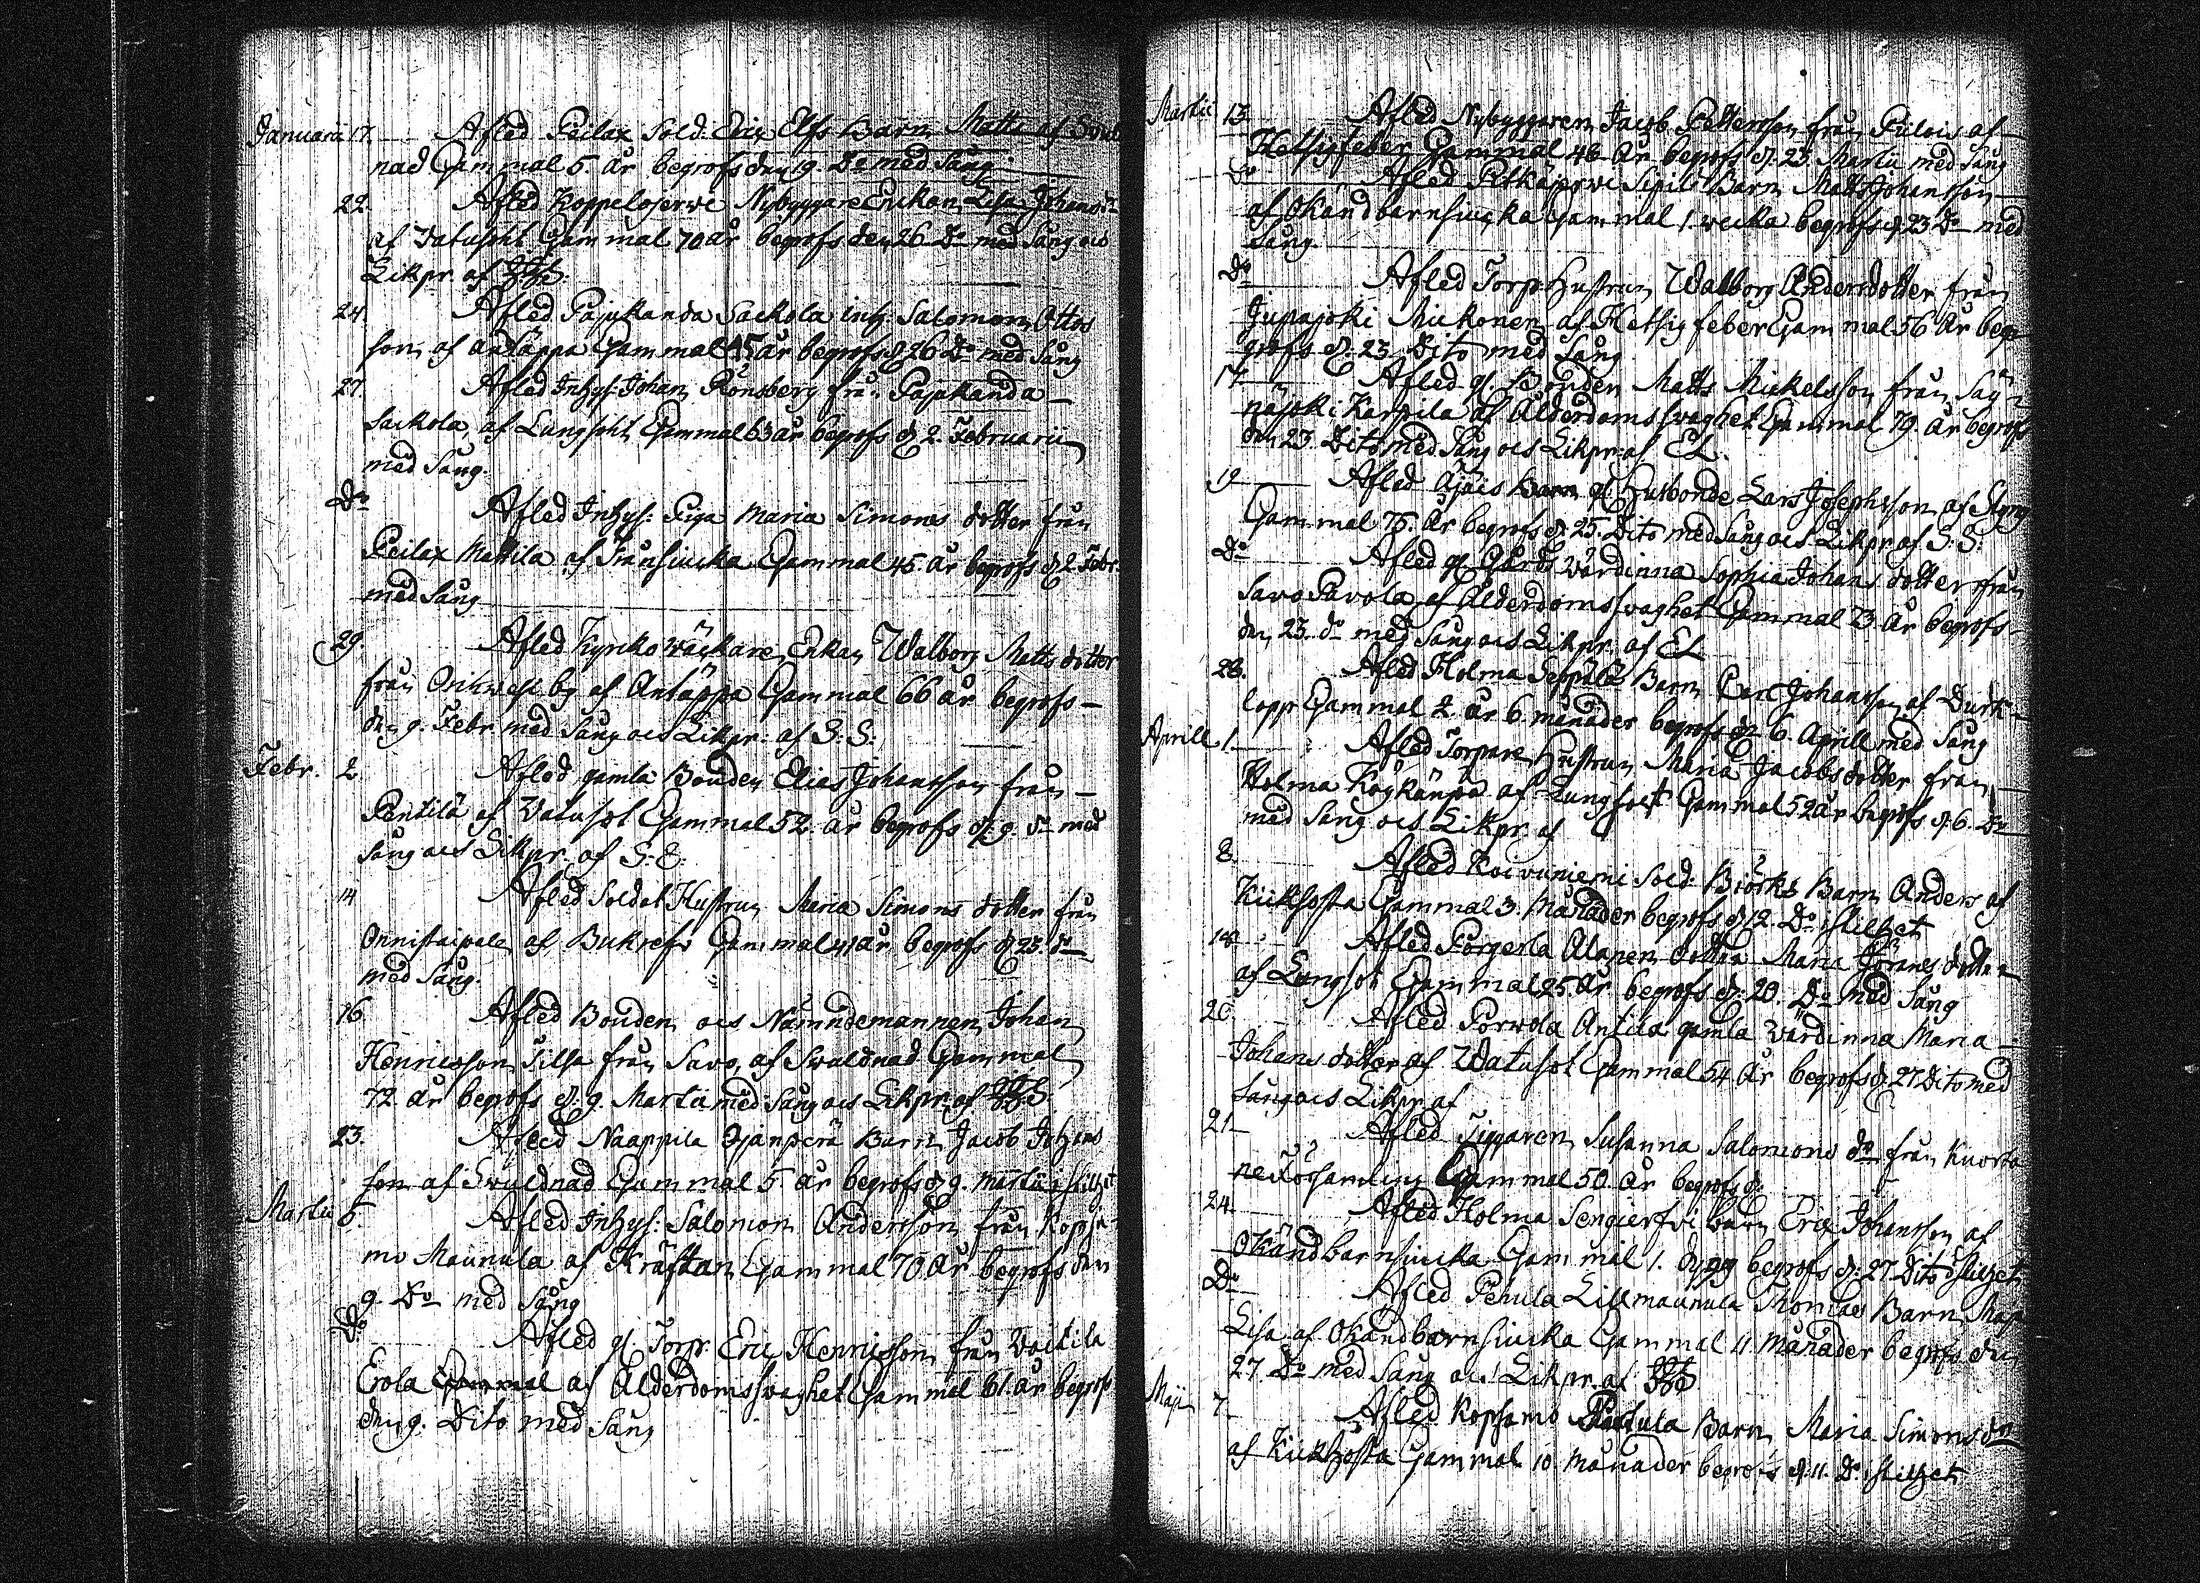 Januarii 17. Afled Peilax Sold: Eric Elfs Barn Matts af Svul
nad Gammal 5. år begrofs den 19. Do med Sång
22. Afled Koppelojerwi Nybyggare Enkan Lisa Johansdr
af Watusoht Gammal 70 år begrofs den 26 Do med Sång ocs
Likpr. af
24. Afled Pajukanda Sackola inh. Salomon Ottos
son af andtäppa Gammal 45 år begrofs d. 26 Do med Sång
27. Afled Inhys: Johan Rönsberg från Pajukanda
Sackola af Lungsoht Gammal 63 år begrofs d 2. Februarii
med Sång.
Do Afled Inhys: Piga Maria Simons dotter från
Peilax Mattila af Trånsiucka Gammal 45. år begrofs d 2 Febr.
med Sång
29. Afled Kyrko wäckare Enkan Walborg Matts dotter
från Orihvesi by af Antäppa Gammal 66 år begrofs
den 9. Febr med Sång ocs Likpr. af S: S:
Febr. 2. Afled gamla Bonden Elias Johansson från
Pentilä af Watusot Gammal 52 år begrofs d. 9. do med
Sång ocs Likpr. af S: E:
14 Afled Soldat Hustrun Maria Simons dotter från
Onnistaipale af Bukrefv Gammal 41 år begrofs d 23. do
med Sång.
16. Afled Bonden ocs Nämndemannen Johan
Henricsson Tilsa från Savo, af Swuldnad Gammal
72. år begrofs d. 9. Martii med Sång ocs Likpr. af
23. Afled Naappila Ojanperä Barn Jacob Johans
son af Swuldnad Gammal 5 år begrofs d 9. Martii i stilhet
Martii 5. Afled Inhys: Salomon Andersson från Kopsa
mo Maunula af Kräftan Gammal 70 år begrofs den
9. Do med Sång
Do Afled gl. Torp: Eric Henricsson från Woitila
Erola Gammal af Ålderdomsswaghet Gammal 61. år begrofs
den 9. Dito med Sång
Martii 13. Afled Nybyggaren Jacob Pettersson från Pulois af
Hetsigfeber Gammal 48 år begrofs d. 23 Martii med Sång
Do Afled Petkäjerwi Sipilä Barn Matts Johansson
af Okänd barnsiucka Gammal 1. wecka begrofs d 23 Do med
Sång
Do Afled Torp Hustrun Walborg Andersdotter från
Jupajoki Mickonen af Hetsig feber Gammal 56 år beg
grofs d. 23. Dito med Sång
17. Afled gl. Bonden Matts Mickelsson från Säy
näjoki Karpila af Ålderdomsswaghet Gammal 79. år begrofs
den 23. Dito med Sång ocs Likpr: af EL.
19 Afled Äjäis Barn gl. Husbonde Lars Josephsson af Styng
Gammal 75. år begrofs d. 25. Dito med Sång ocs Likpr af S: S:
Do Afled gl Gårds Wärdinna Sophia Johans dotter från
Savo Pavola af Ålderdomsswaghet Gammal 73 år begrofs
den 23. do med Sång ocs Likpr. af EL
28. Afled Holma Seppälä Barn Carl Johansson af Durk
lopp Gammal 2. år 6 månader begrofs d 6. Aprill med Sång
Aprill 1. Afled Torpare Hustrun Maria Jacobsdotter från
Holma Käykänpä af Lungsoct Gammal 52 år begrofs d. 6. Do
med Sång ocs Likpr. af
8. Afled Koivuniemi Sold: Biörks Barn Anders af
Kiikhosta Gammal 3. Månader begrofs d 12. Do i stilhet
18. Afled Sörgerla Alanen dotter Maria Görans dotter
af Lungsot Gammal 25. år begrofs d. 20. Do med Sång
20. Afled Porwola Antila gamla Wärdinna Maria
Johans dotter af Watusot Gammal 54 år begrofs d. 27 Dito med
Sång ocs Likpr af
21. Afled Tiggaren Susanna Salomons dr från Kuorta
ne Församling Gammal 50. år begrofs d:
24. Afled Holma Sengierfvi barn Eric Johansson af
Okänd barnsiucka Gammal 1. dygn begrofs d. 27. Dito i stilhet
Do Afled Pehula Lillmaunula Thomaes Barn Maja
Lisa af Okändbarnsiucka Gammal 11. månader begrofs den
27. Do med Sång ocs Likpr. af
Maji 7. Afled Kopsamo Pertula Barn Maria Simonsdr
af Kiikhosta Gammal 10. månader begrofs d. 11. Do i stilhet